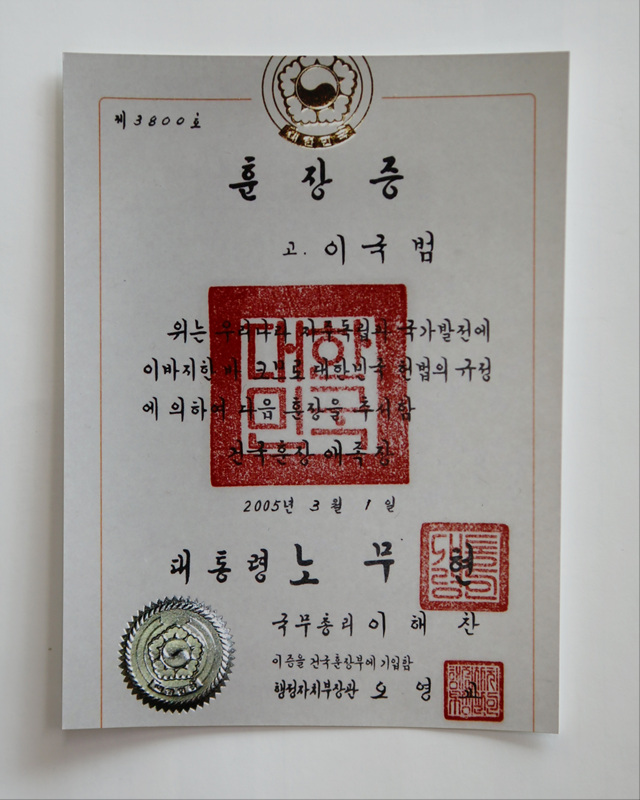 대한민국
제3800호
훈장증
고. 이국범
위는 우리나라 자주독립과 국가발전에
이바지한 바 크므로 대한민국 헌법의 규정
에 의하여 다음 훈장을 추서함
건국훈장 애족장
대한
민국
2005년 3월 1일
대통령 노무현
국무총리 이해찬
이 증을 건국훈장부에 기입함
행정자치부장관 오영교
대한민국